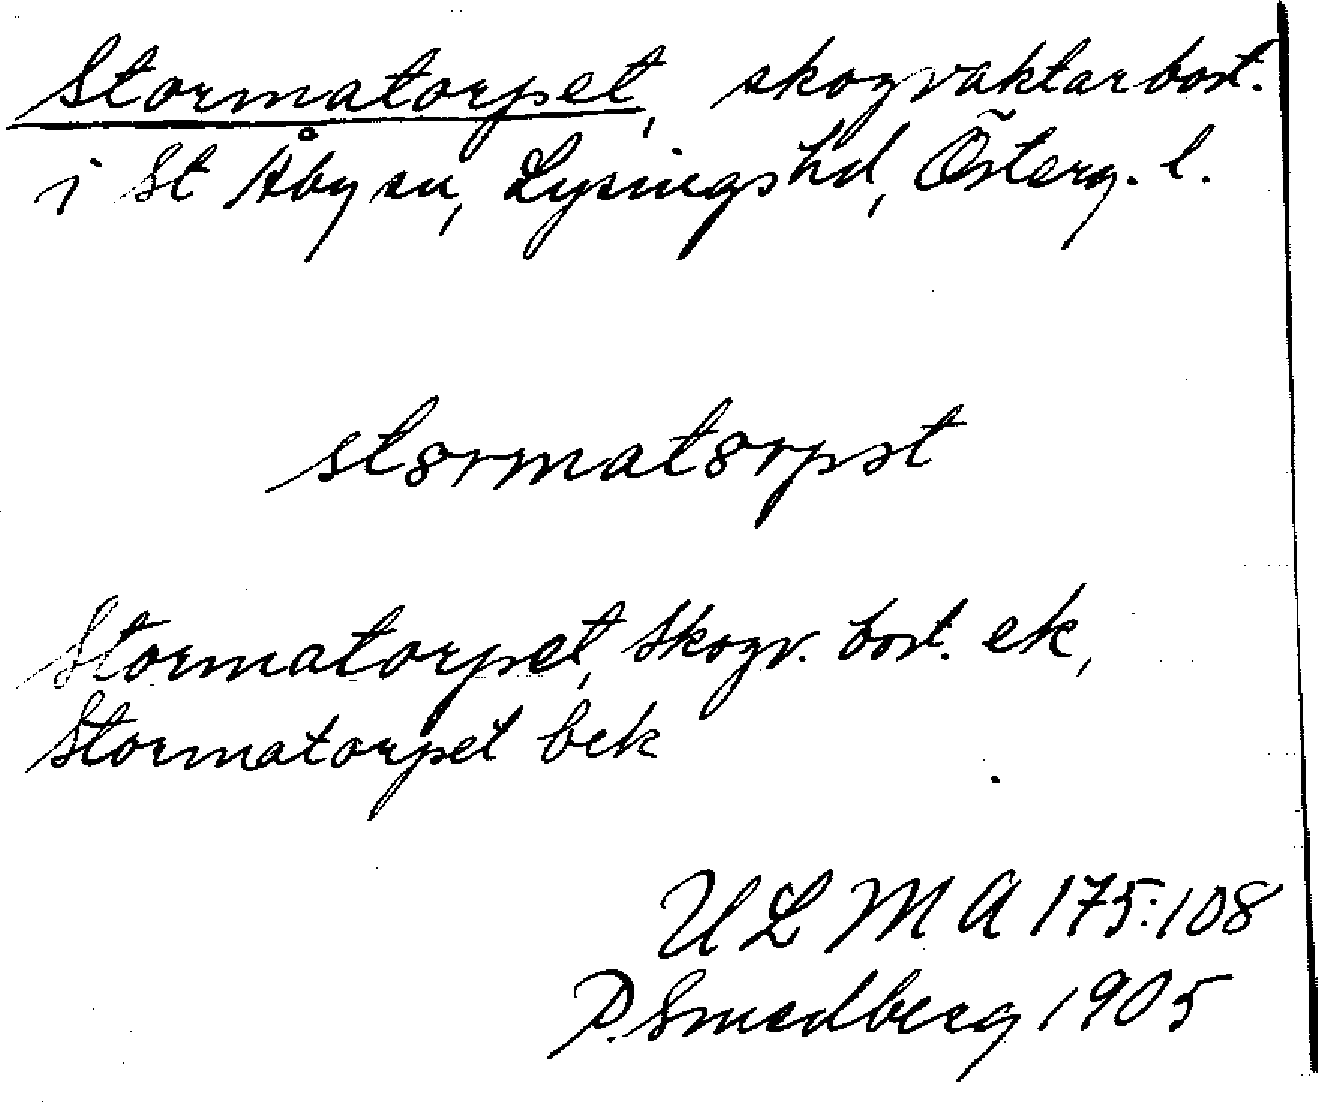 Stormatorpet, skogvaktarbost.
i St Åby sn, Lysings hd, Österg. l.
stormatorpət
Stormatorpet, skogv. bost. ek,
Stormatorpet bek
ULMA 175:108
P. Smedberg 1905